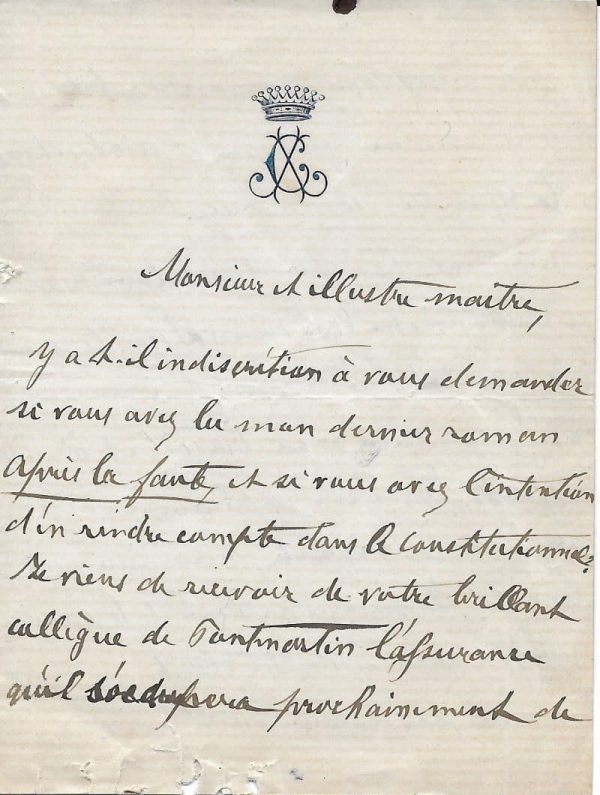 Monsieur et illustre maître,
y a t-il indiscrétion à vous demander
si vous avez lu mon dernier roman
Après la faute, et si vous avez l'intention
d'en rendre compte dans le Constitutionnel?
Je viens de recevoir de votre brillant
collègue de Pontmartin l'assurance
qu'il s'occupera prochainement de